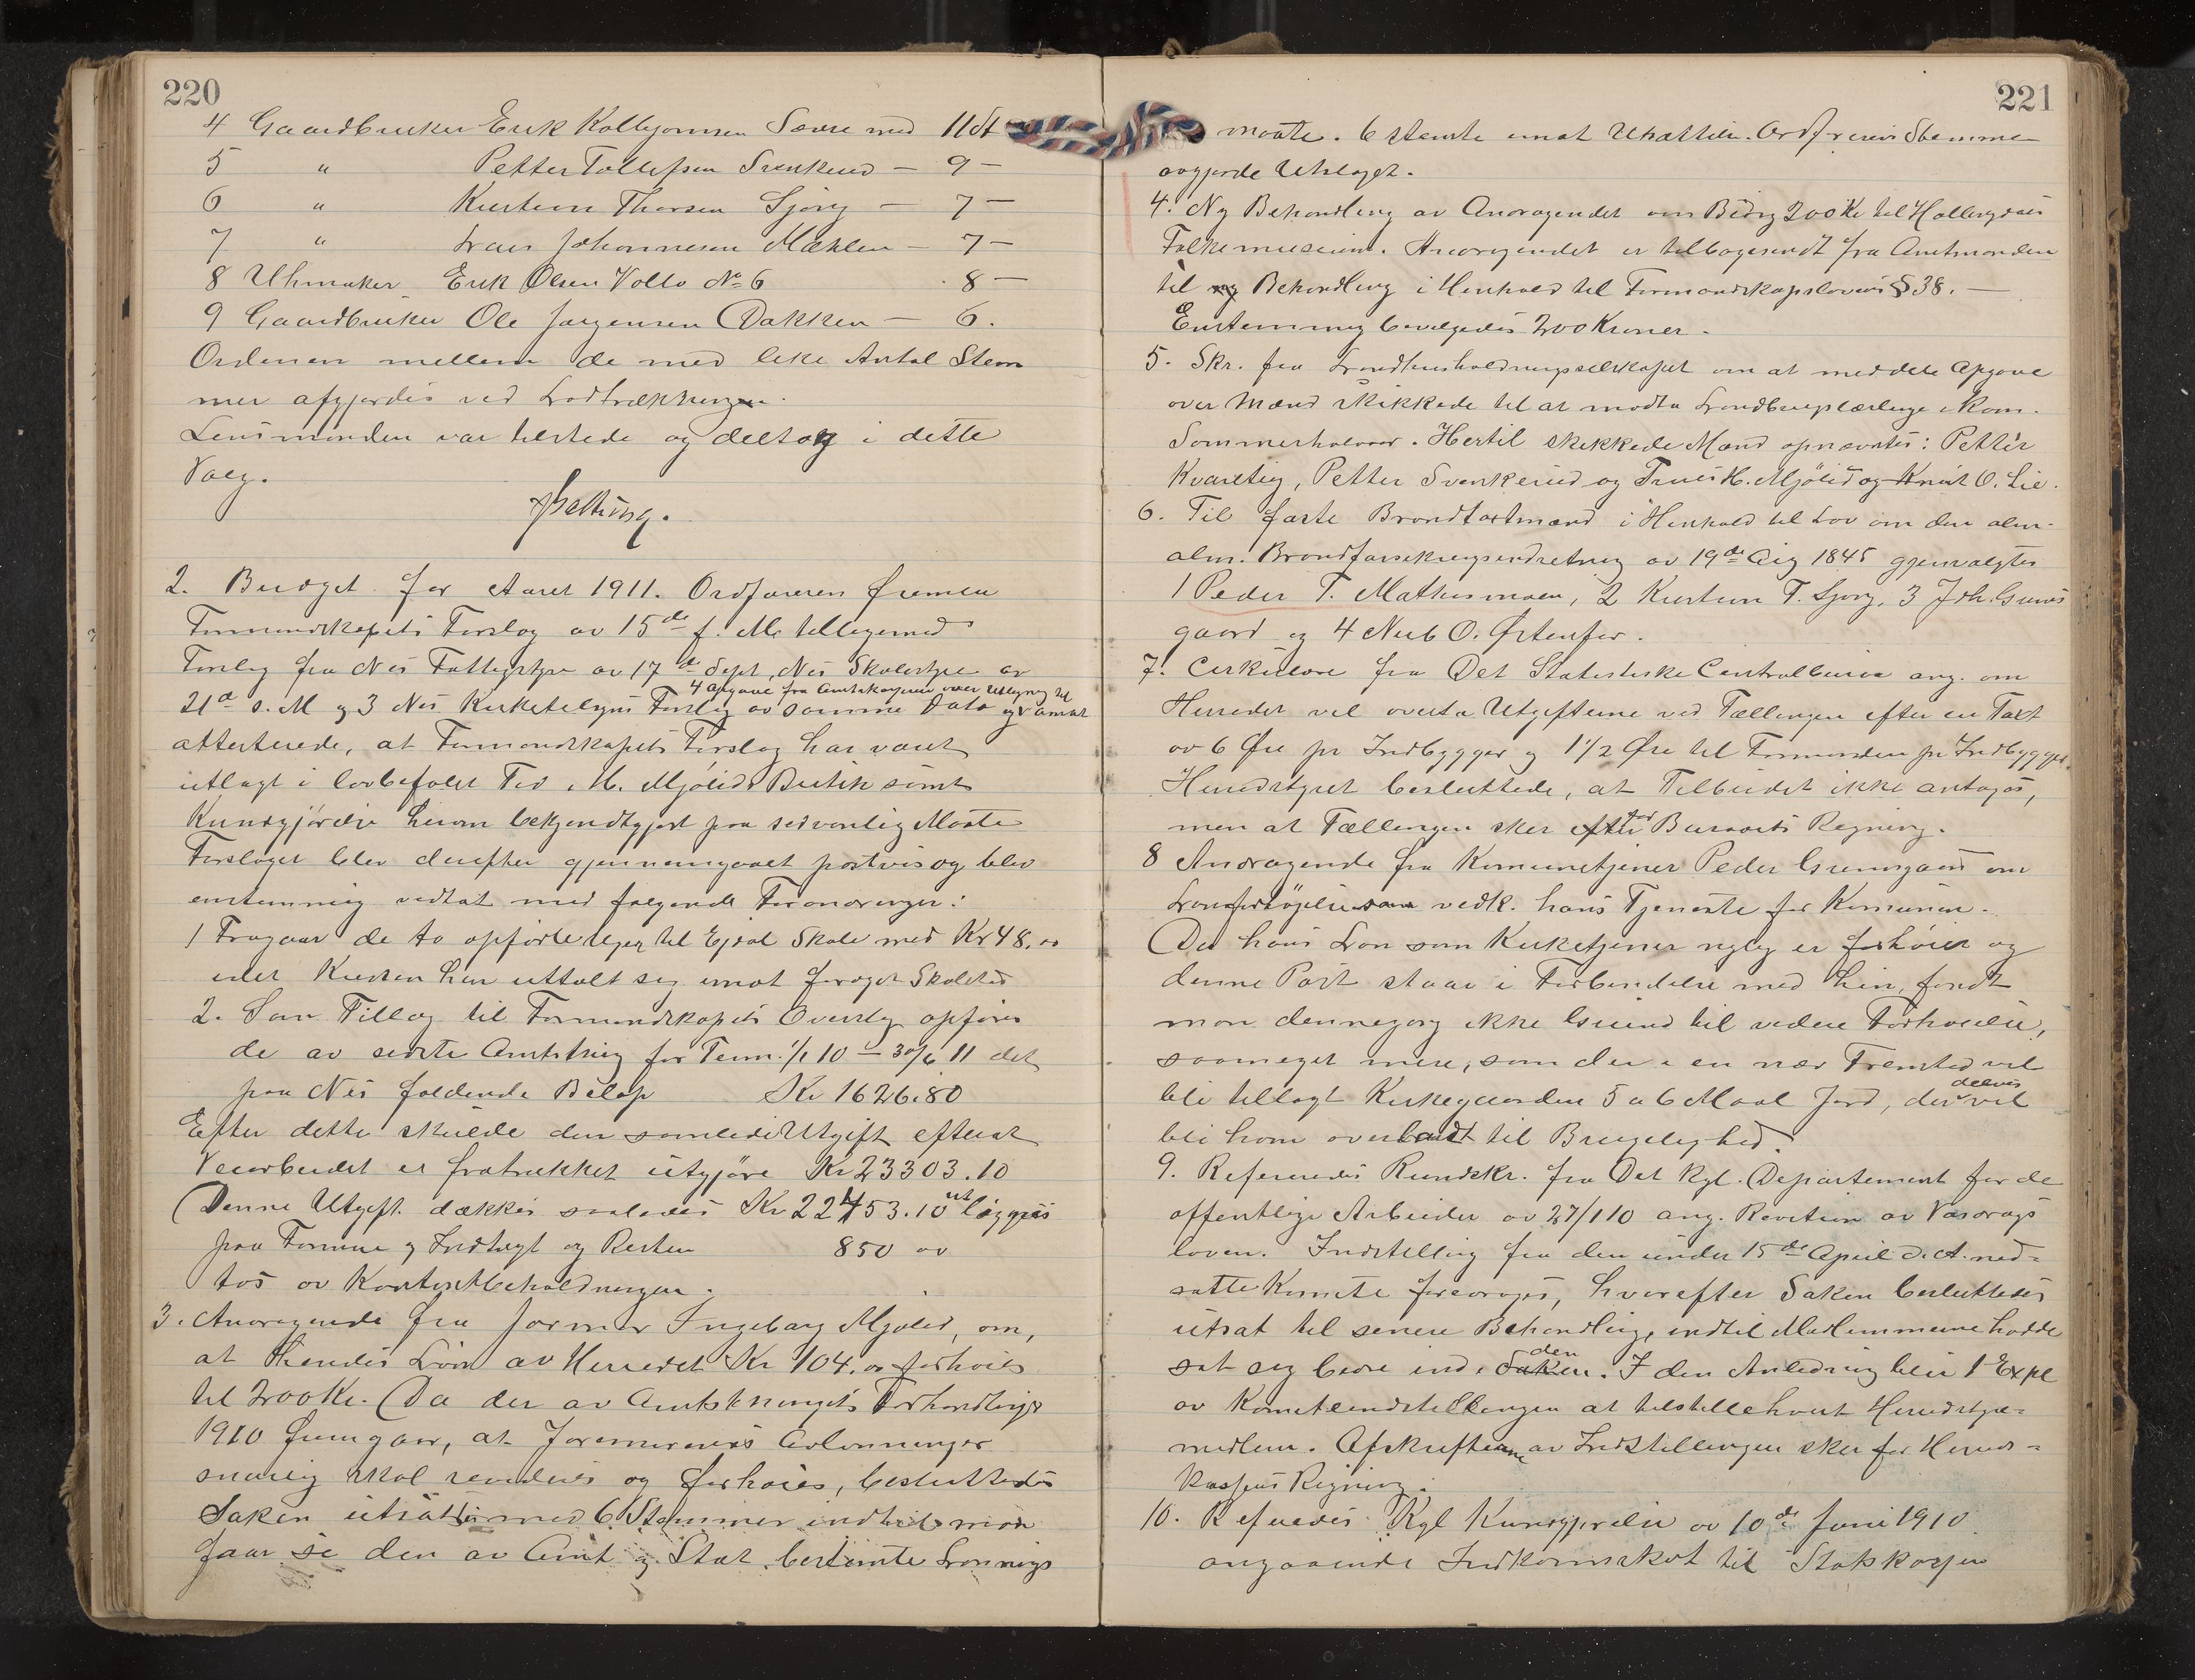 220
4 Gaardbruker Erik Kolbjørnsen Sævre med 11 St
5 " Petter Tollefsen Svenkerud — 9 —
6 " Kristen Thorsen Ljøng — 7 —
7 " Johannesen Mæhlen — 7 —
8 Uhrmaker Erik Olsen Volto No 6 8 —
9 Gaardbruker Ole Jørgensen Dokken — 6.
Ordenen mellem de med like Antal Stem
mer afgjordes ved Lodtrækningen.
Lensmanden var tilstede og deltog i dette
Valg.
2. Budget for Aaret 1911. Ordføreren fremla
Formandskapets Forslag av 15de f. M. tillegemed
Forslag fra Nes Fattigstyre av 17de Sept, Nes Skolestyre av
4 Opgave fra Amtskassereren over Utligning til
21de s. M og 3 Nes Kirketilsyns Forslag av samme Dato og
atterterede, at Formandskapets Forslag har været
utlagt i lovbefalet Tid i H. Mjølids Butik samt
Kundgjørelse herom bekjendtgjort paa sedvanlig Maate
Forslaget blev derefter gjennemgaaet postvis og blev
enstemmig vedtat med følgende Forandringer:
1 Fragaar de to opførte Uger til Ejdal Skole med Kr 48.00
idet Kredsen har uttalt seg imot forøget Skoletid
2. Som Tillæg til Formandskapets Overslag opføres
de av sidste Amtsting for Term. 1/1 10 — 30/6 11 det
paa Nes faldende Beløp Kr 1626.80
Efter dette skulde den samlede Utgift efterat
Veiarbeidet er fratrukket utgjøre Kr 23303.10
Denne Utgift dækkes saaledes Kr 22453.10 utlignes
paa Formue og Indtægt og Resten 850 00
tas av Kontantbeholdningen.
3. Andragende fra Jormor Ingeborg Mjølid, om,
at hendes Løn av Herredet Kr 104.00 forhøies
til 200 Kr. Da der av Amtstingets Forhandlinger
1910 fremgaar, at Jormødrenes Avlønninger
snarlig skal revideres og forhøies, besluttedes
Saken utsat med 6 Stemmer indtil man
faar se den av Amt og Stat bestemte Lønnings
221
maate. 6 stemte imot Utsættelse. Ordførerens Stemme
avgjorde Utslaget.
4. Ny Behandling av Andragendet om Bidrag 200 Kr til Hallingdals
Folkemuseum. Andragendet er tilbagesendt fra Amtmanden
til ny Behandling i Henhold til Formandskapslovens § 38. —
Enstemmig bevilgedes 200 Kroner.
5. Skr. fra Landhusholdningsselskapet om at meddele Opgave
over Mænd skikkede til at motta Landbrukslærlinge i kom.
Sommerhalvaar. Hertil skikkede Mænd opnævntes: Petter
Kvarstig, Petter Svenkerud og Truls H. Mjølid og Knut O. Lie.
6. Til faste Brandtakstmænd i Henhold til Lov om den alm-
alm. Brandforsikringsindretning av 19de Aug 1845 gjenvalgtes
1 Peder T. Mathismoen, 2 Kristen T. Ljøng, 3 Joh. Grims
gaard og 4 Neub O. Østenfor.
7. Cirkulære fra Det Statistiske Centralbureau ang. om
Herredet vil overta Utgifterne ved Tællingen efter en Takst
av 6 Øre pr Indbygger og 1 1/2 Øre til Formanden pr Indbygger.
Herredstyret besluttede, at Tilbudet ikke antages,
men at Tællingen sker efter for Bureauets Regning.
8 Andragende fra Komunetjener Peder Grimsgaard om
Lønsforhøjelse som vedk. hans Tjeneste for Komunen.
Da hans Løn som Kirketjener nylig er forhøiet og
denne Post staar i Forbindelse med hin, fandt
man dennegang ikke Grund til videre Forhøielse,
saameget mere, som der i en nær Fremtid vil
bli tillagt Kirkegaarden 5 a 6 Maal Jord, der delvis vil
bli ham overladt til Brugelighed.
9. Refereredes Rundskr. fra Det kgl. Departement for de
offentlige Arbeider av 27/1 10 ang. Revision av Vasdrags
loven. Indstilling fra den under 15de April d. A. ned-
satte Komite foredroges, hvorefter Saken besluttedes
utsat til senere Behandling, indtil Medlemmerne hadde
sat seg bedre ind i den Saken. I den Anledning blir 1 Expl
av Komiteindstillingen at tilstille hvert Herredstyre-
medlem. Afskrifterne av Indstillingen sker for Herreds-
kassens Regning.
10. Refereredes Kgl Kundgjørelse av 10de Juni 1910
angaaende Indkomskat til Statskassen